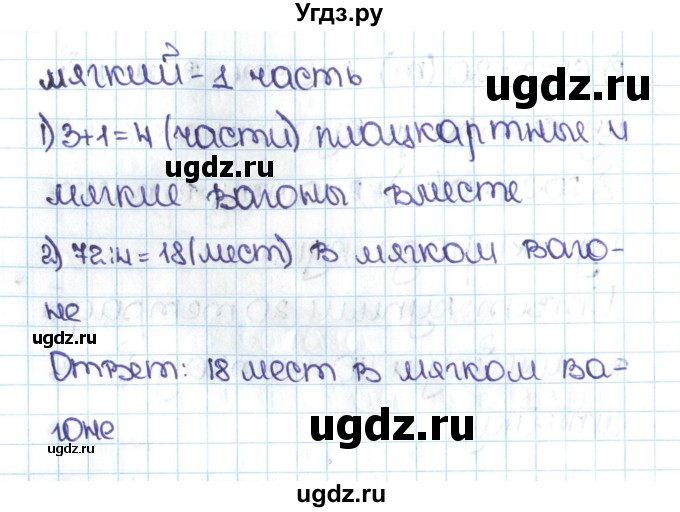 Угдз.ру
мягкий - 1 часть
ugdz.ru
1) 3+1=4 (части) плацкартные и
ugdz.ru
мягкие вагоны вместе
ugdz.ru
2) 72:4=18 (мест) в мягком ваго-
не
ugdz.ru
Ответ: 18 мест в мягком ва-
гоне
ugdz.ru
ugdz.ru
ugdz.ru